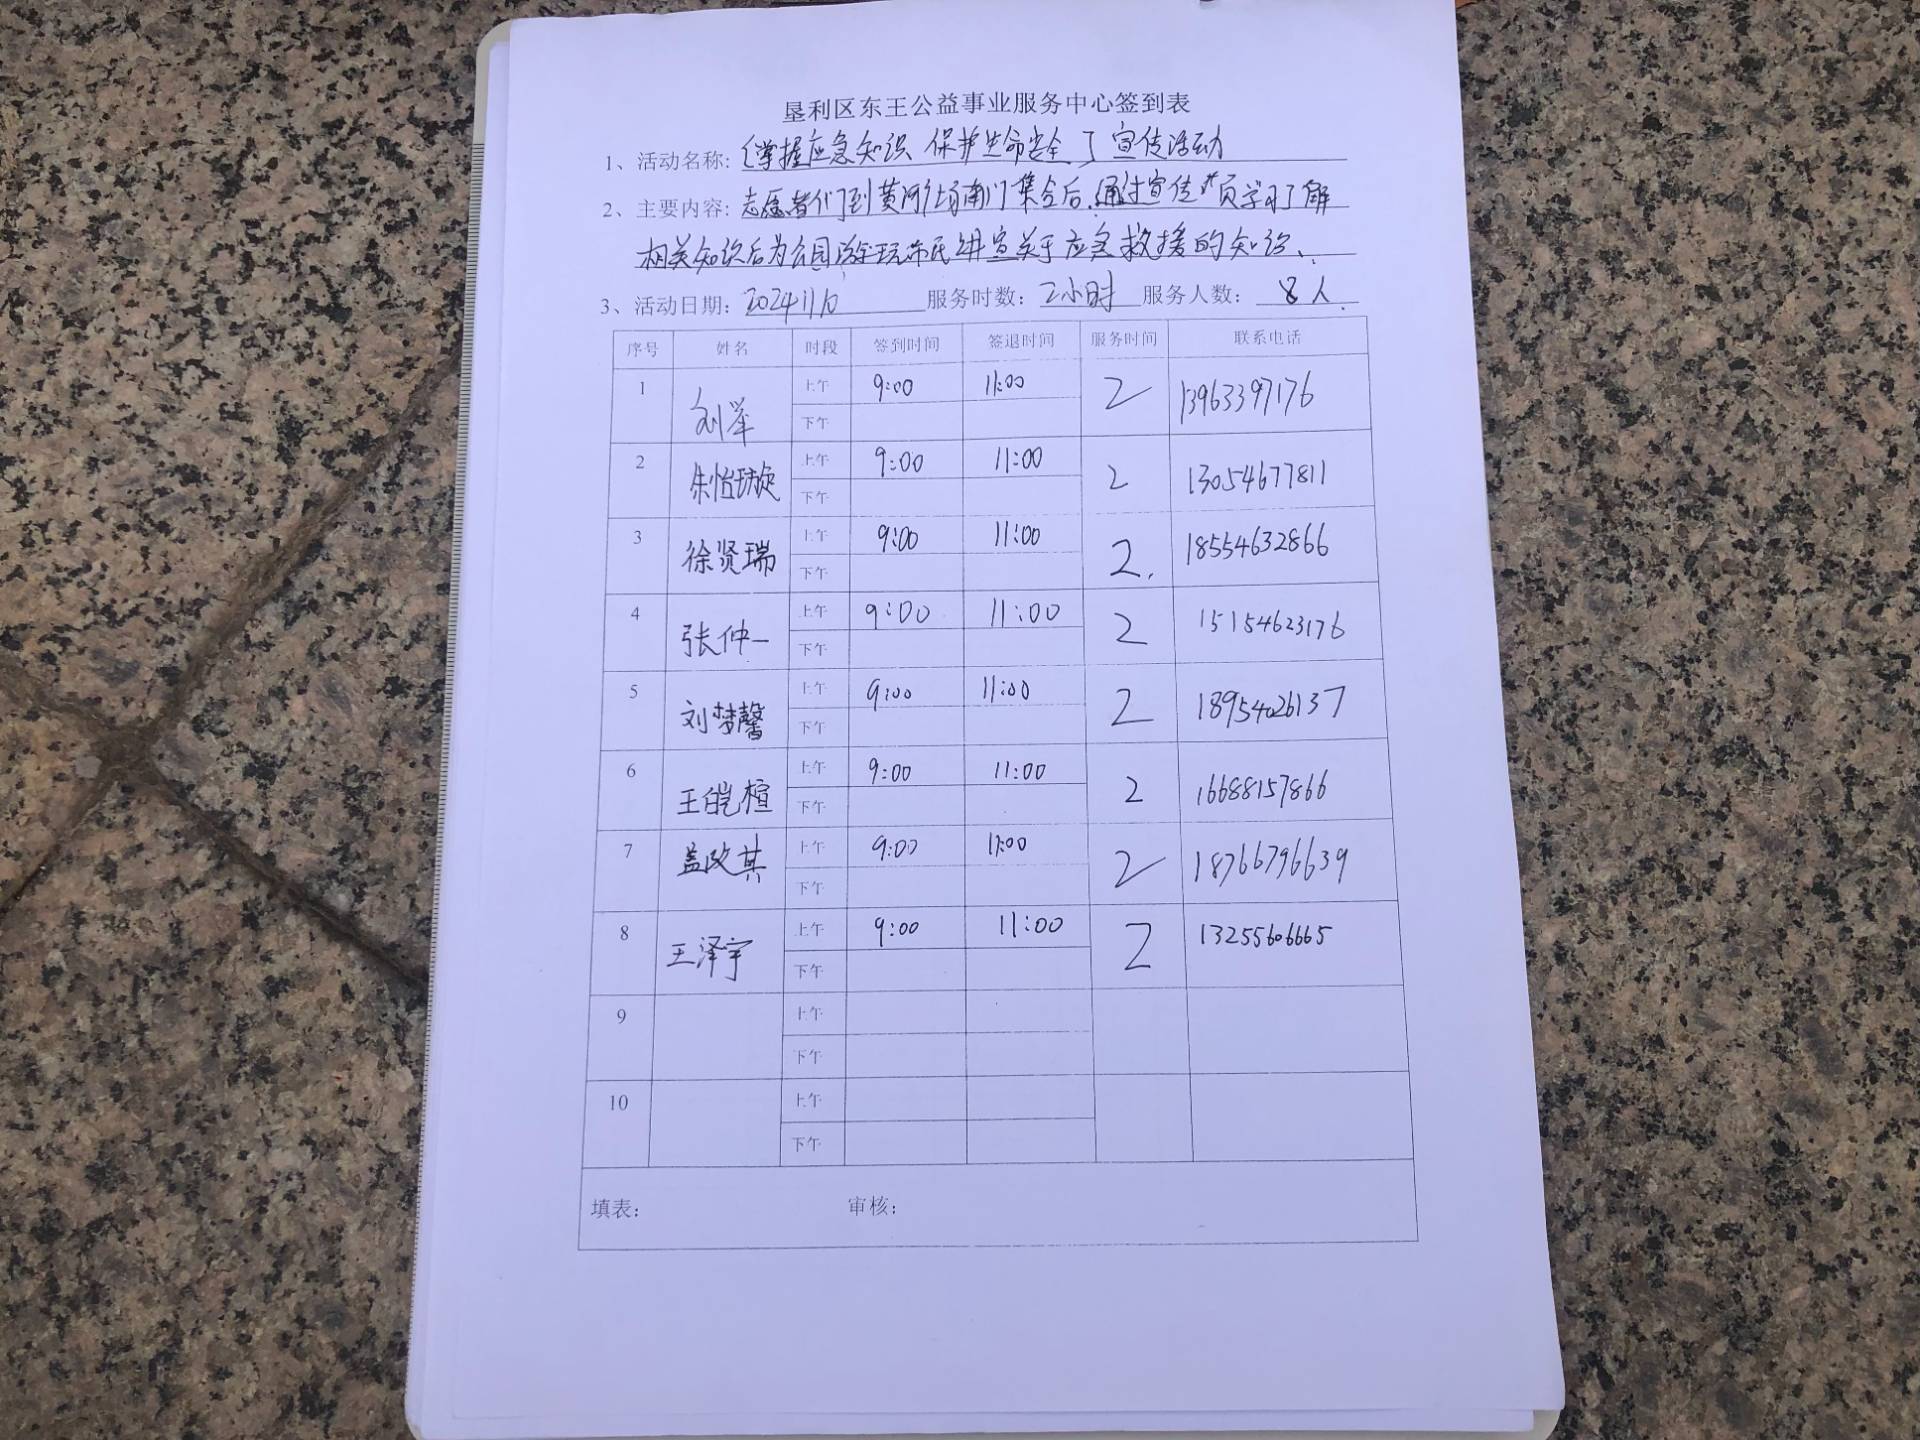 垦利区东王公益事业服务中心签到表
1、活动名称: 《掌握应急知识 保护生命安全》宣传活动
2、主要内容: 志愿者们到黄河广场南门集合后,通过宣传 页学习了解
相关知识后为公园游玩市民讲宣关于应急救援的知识、
3、活动日期: 2024 11/10 服务时数: 2小时 服务人数: 8人
序号 姓名 时段 签到时间 签退时间 服务时间 联系电话
1 刘举 上午 9:00 11:00 2 13963397176
下午
2 朱怡璇 上午 9:00 11:00 2 13054677811
下午
3 徐贤瑞 上午 9:00 11:00 2. 18554632866
下午
4 张仲一 上午 9:00 11:00 2 15154623176
下午
5 刘梦馨 上午 9:00 11:00 2 18954026137
下午
6 王皑楦 上午 9:00 11:00 2 16688157866
下午
7 盖政其 上午 9:00 11:00 2 18766796639
下午
8 王泽宇 上午 9:00 11:00 2 13255606665
下午
9 上午
下午
10 上午
下午
填表: 审核: